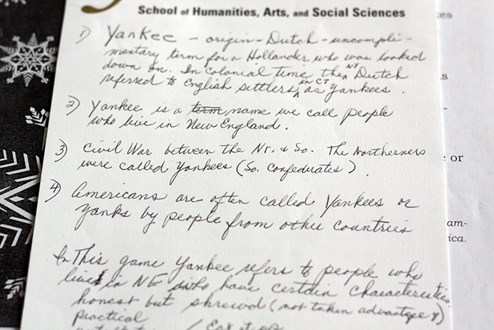 School of Humanities, Arts, and Social Sciences
1) Yankee - origin - Dutch - uncompli-
mentary term for a Hollander who was looked
down on. In colonial time the NY Dutch
referred to English settlers in CT as Yankees.
2) Yankee is a term name we call people
who live in New England.
3) Civil War between the No. & So. The Northerners
were called Yankees (So. Confederates).
4) Americans are often called Yankees or
Yanks by people from other countries
In This game Yankee refers to people who
live in NE who have certain characteristics
honest but shrewd (not taken advantage of)
practical
es
e or
am-
ica.